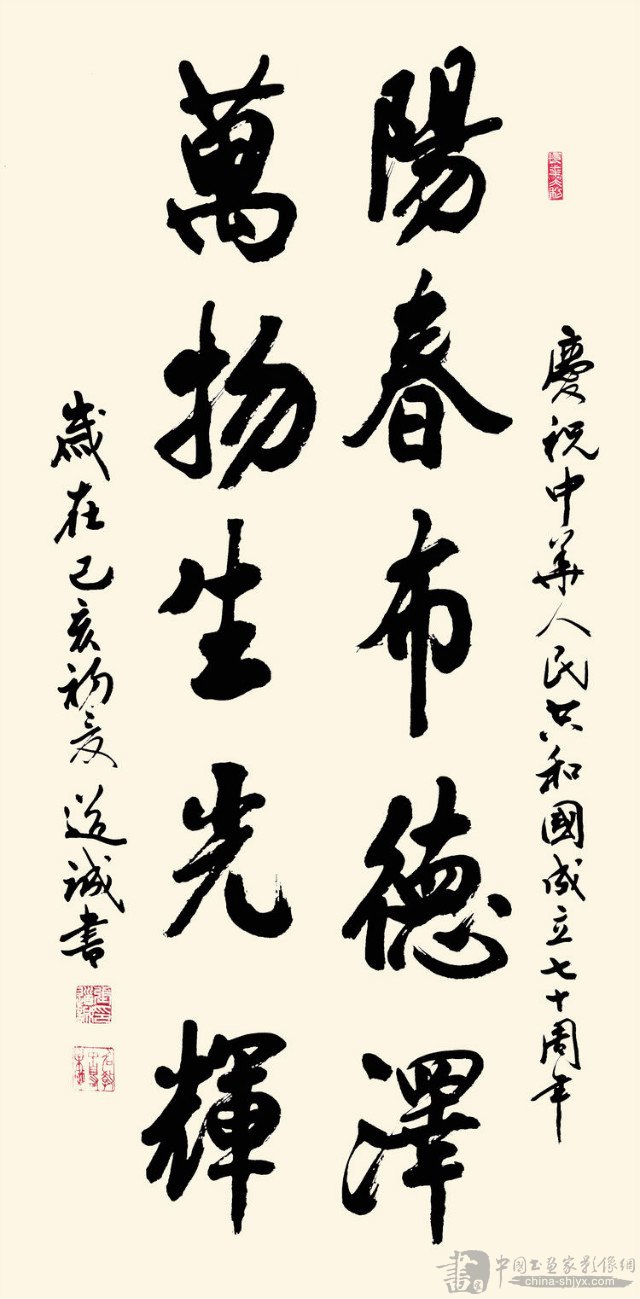 慶祝中華人民共和國成立七十周年
陽春布德澤
萬物生光輝
歲在己亥初夏道誠書
中國書畫家影像網
china-shjyx.com